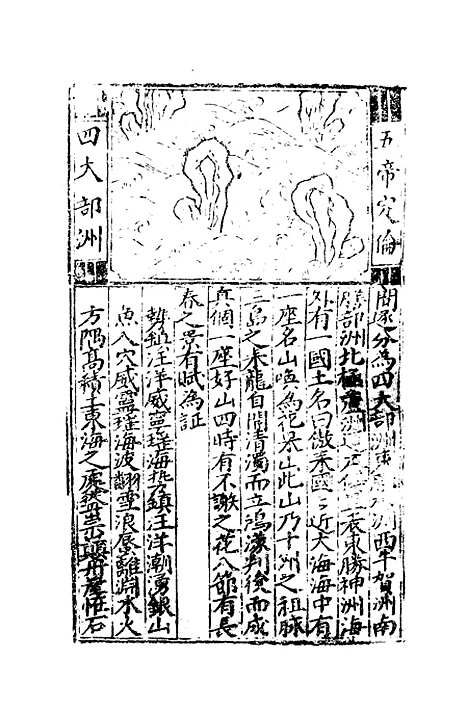 五帝究倫
四大部洲
間遂分為四大部洲東洲西牛賀洲南
部洲北極蘆洲表東勝神洲海
外有一國土名曰傲來國〻近大海海中有
一座名山喚為花果山此山乃十洲之祖脉
三島之來龍自開清濁而立鴻濛判後而成
真個一座好山四時有不謝之花八節有長
春之景有賦為証
勢鎮汪洋威寧瑤海勢鎮汪洋潮勇銀山
魚入穴威寧瑤海波翻雪浪蜃離淵水火
方隅高積土東海之處聳崇巔丹崖怪石